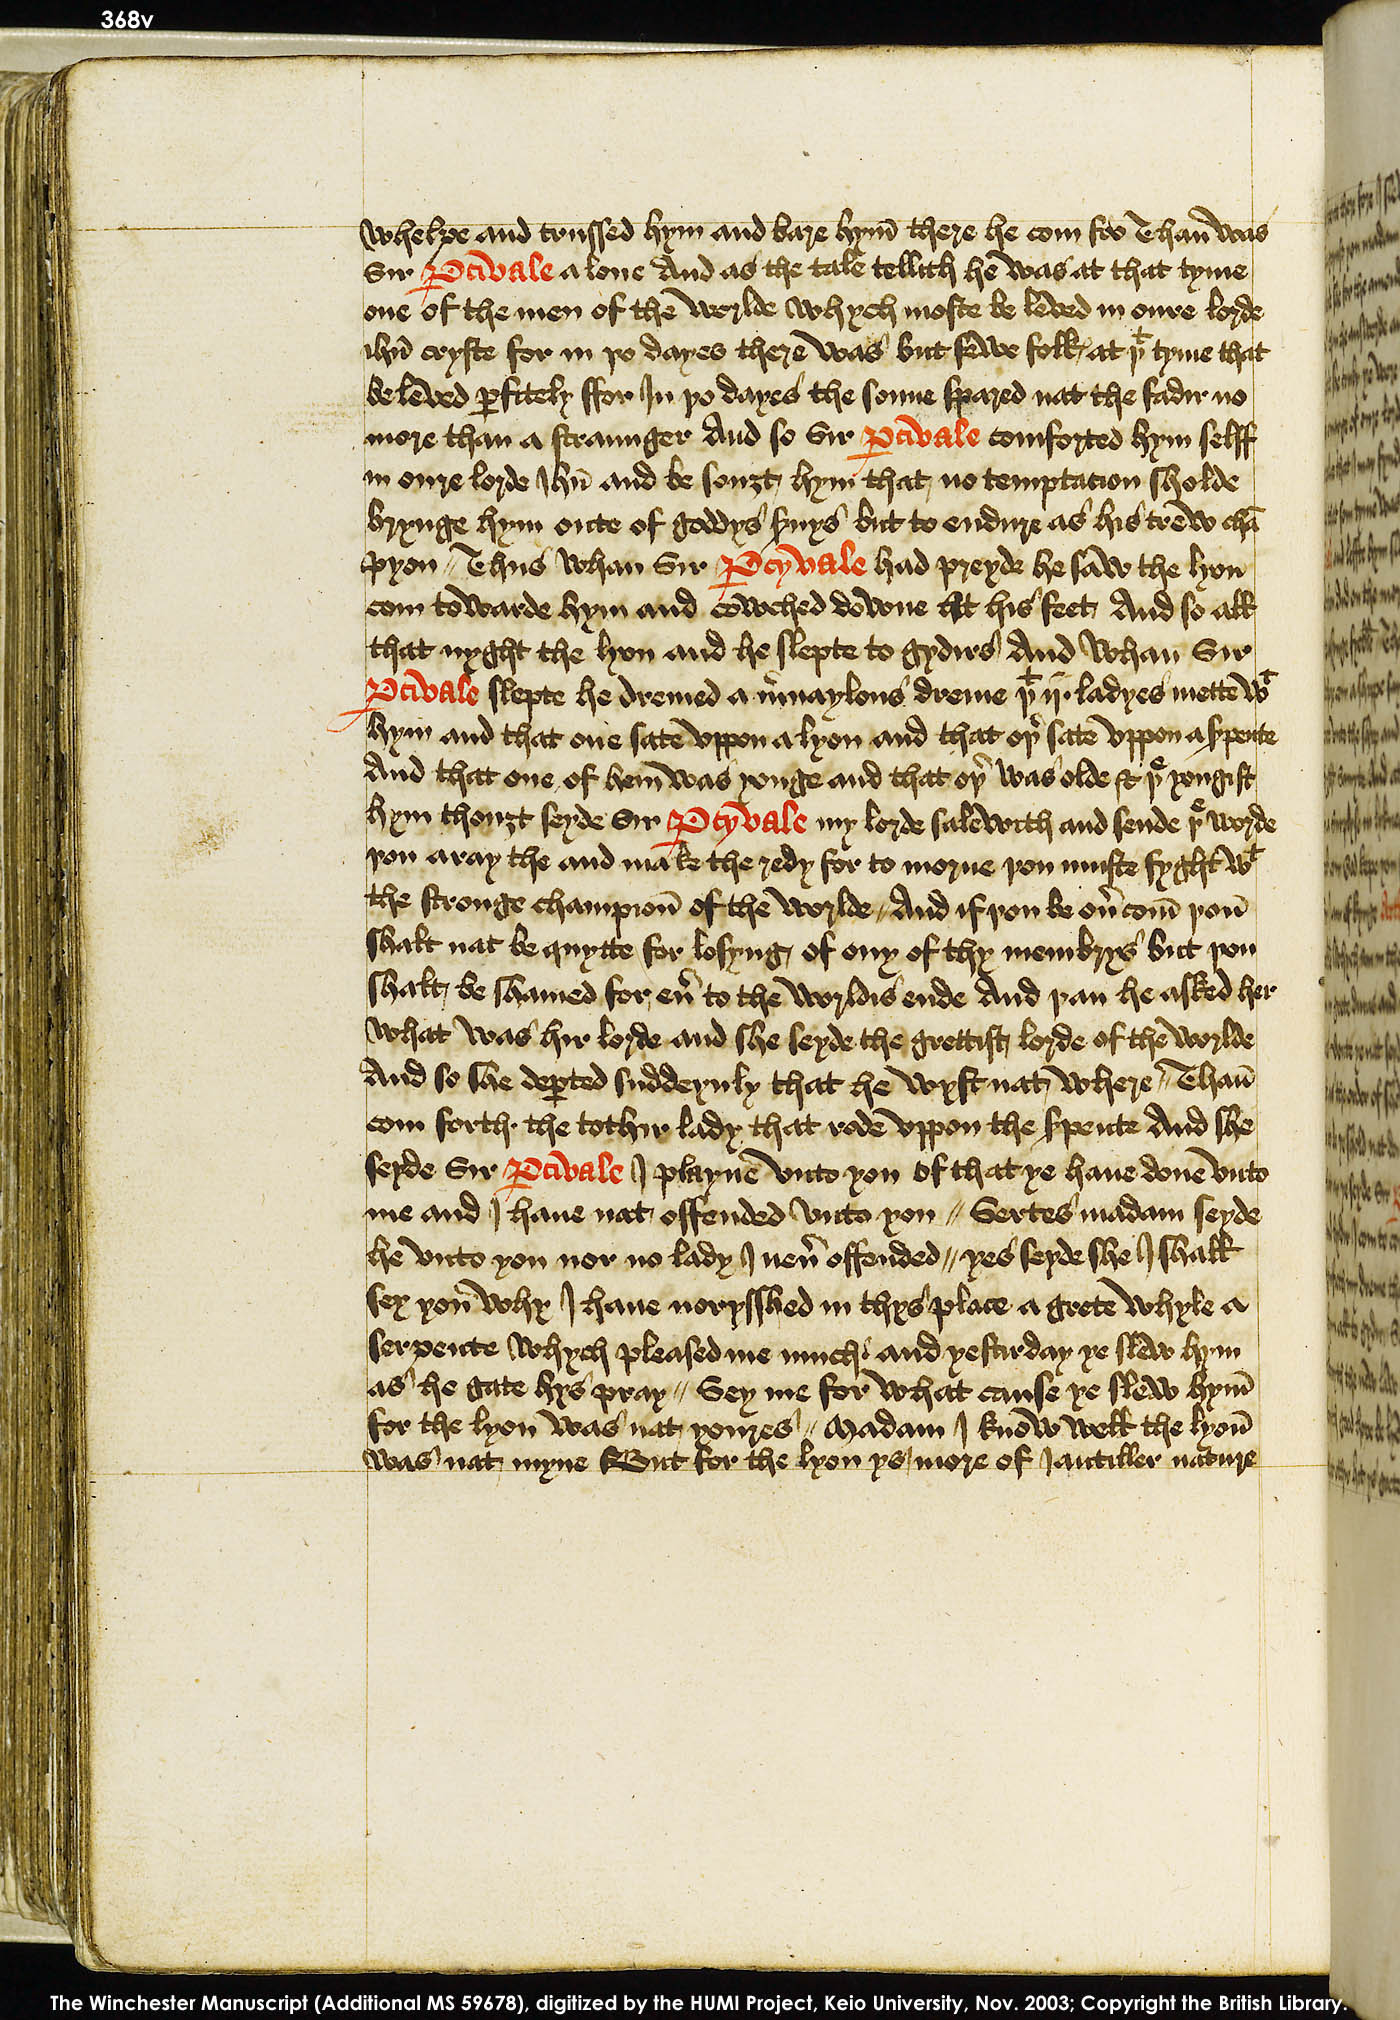 368v
whelpe and trussed hym and bare hym̄ there he com fro Than was
Sir P̲civale a lone And as the tale tellith he was at that tyme
one of the men of the worlde whych moste be leved in oure lorde
ihū cryste for in þo dayes there was but fewe folk at þt tyme that
be leved ꝑfitely ffor In þo dayes the sonne spared nat the fadir no
more than a straunger And so Sir Ꝑcivale comforted hym selff
in oure lorde Ihū and be souȝt hym that no temptacion sholde
brynge hym oute of goddys s̄uys but to endure as his trew chā
pyon // Thus whan Sir Ꝑcyvale had preyde he saw the lyon
com towarde hym and cowched downe At his feet And so all
that nyght the lyon and he slepte to gydirs And whan Sir
Ꝑcivale slepte he dremed a m̄vaylous dreme þt ij. ladyes mette wt
hym and that one sate vppon a lyon and that oþr sate vppon a s̄pente
And that one of hem was yonge and that oþr was olde & þe yongist
hym thouȝt seyde Sir Ꝑcyvale my lorde salewith and sende þe worde
þou aray the and make the redy for to morne þou muste fyght wt
the stronge champion̄ of the worlde // And if þou be ov̄com̄ þou
shalt nat be quytte for losyng of ony of thy membrys but þou
shalt be shamed for ev̄ to the worldis ende And þan he asked her
what was hir lorde and she seyde the grettist lorde of the worlde
And so she deꝑted suddeynly that he wyst nat where // Than̄
com forth the tothir lady that rode vppon the s̄pente And she
seyde Sir Ꝑcivale I playne vnto you of that ye haue done vnto
me and I haue nat offended vnto you // Sertes madam seyde
he vnto you nor no lady I nev̄ offended // yes seyde she I shall
sey you why I haue norysshed in thys place a grete whyle a
serpente whych pleased me much and yestirday ye slew hym
as he gate hys pray // Sey me for what cause ye slew hym̄
for the lyon was nat youres // Madam I know well the lyon̄
was nat myne But for the lyon ys more of Iantiller nature
The Winchester Manuscript (Additional MS 59678), digitized by the HUMI Project, Keio University, Nov. 2003; Copyright the British Library.